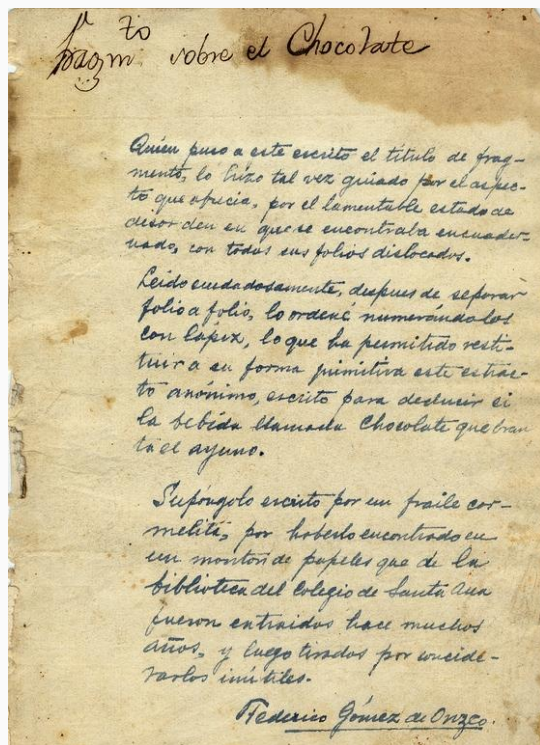 Fragm.to sobre el Chocolate
Quien puso a este escrito el título de frag-
mento, lo hizo tal vez guiado por el aspec-
to que ofrecia, por el lamentable estado de
desorden en que se encontraba encuader-
nado, con todos sus folios dislocados.
Leido cuidadosamente, despues de separar
folio a folio, lo ordené numerándolos
con lápiz, lo que ha permitido resti-
tuir a su forma primitiva este estrac-
to anónimo, escrito para deducir si
la bebida llamada Chocolate quebran
ta el ayuno.
Supóngolo escrito por un fraile car-
melita, por haberlo encontrado en
un montón de papeles que de la
biblioteca del Colegio de Santa Ana
fueron extraidos hace muchos
años, y luego tirados por concide-
rarlos inútiles.
Federico Gómez de Orozco.